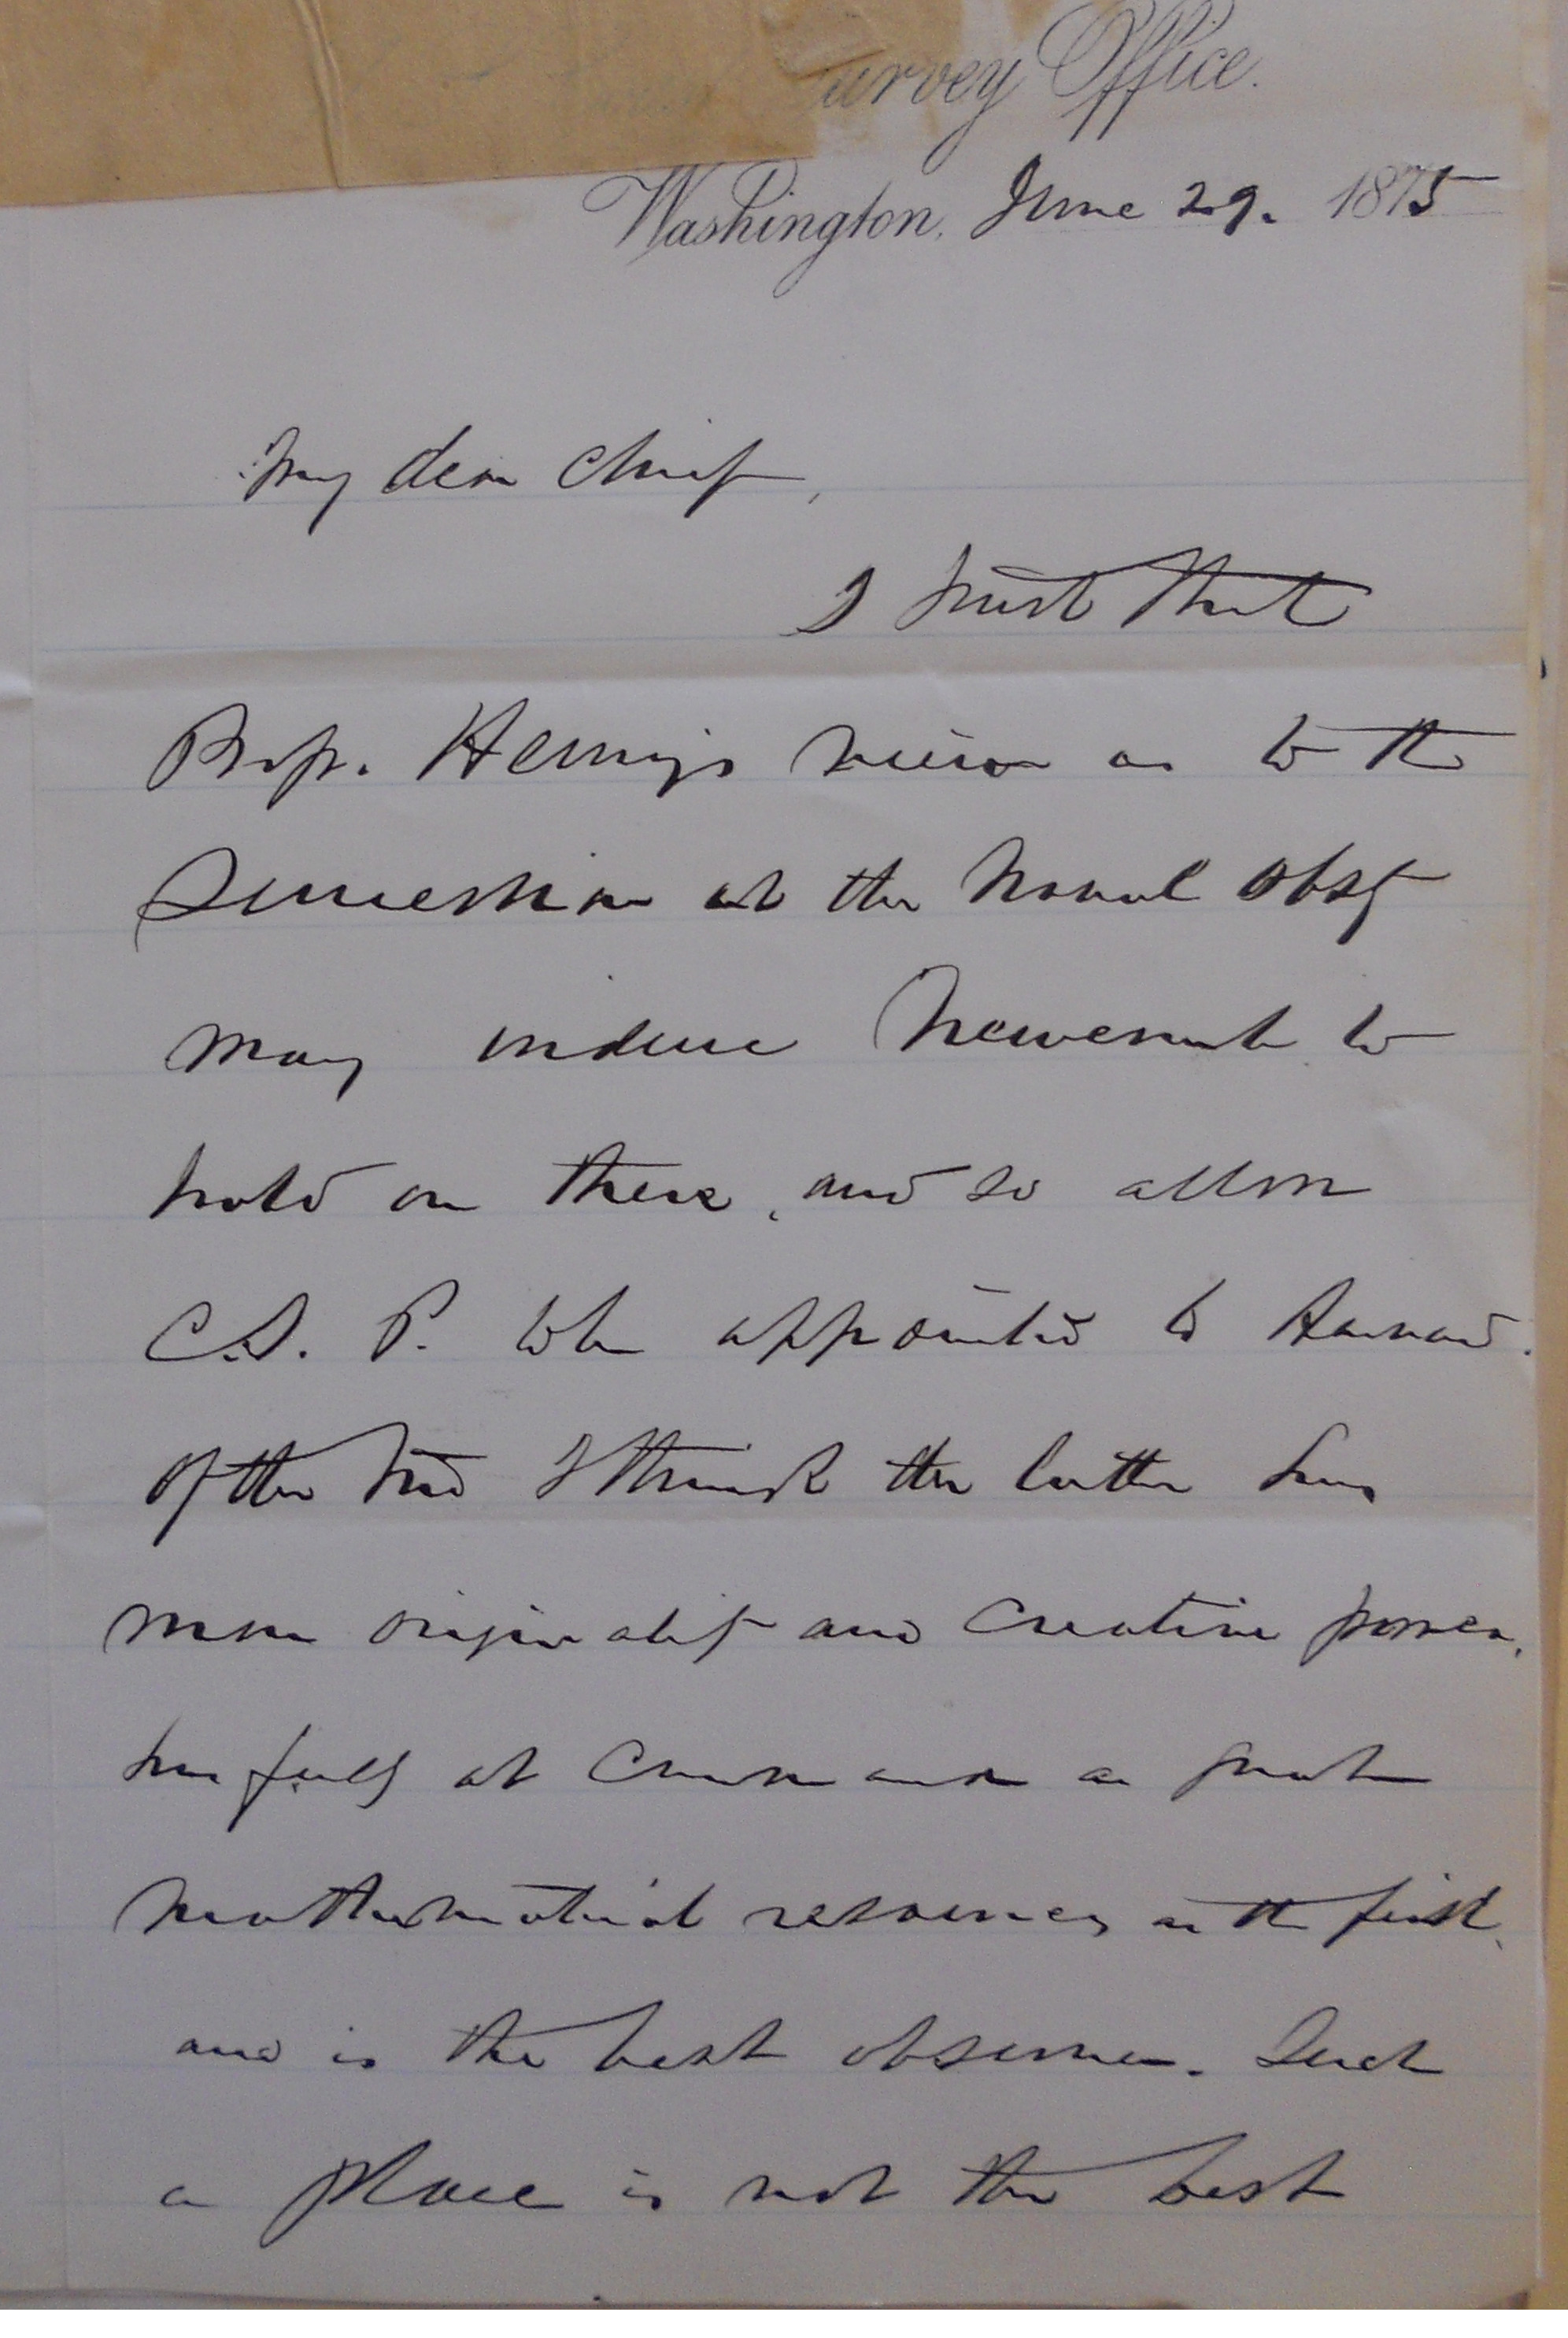 urvey Office.
Washington, June 29. 1875
My dear Chief,
I trust that
Prof. Henry's views as to the
Succession at the Naval Obsy
may induce Newcomb to
hold on there, and so allow
C.S. P. to be appointed to Harvard.
Of the two I think the latter has
more originality and creative power,
has fully at command as great
mathematical resources as the first,
and is the best observer. Such
a place is not the best